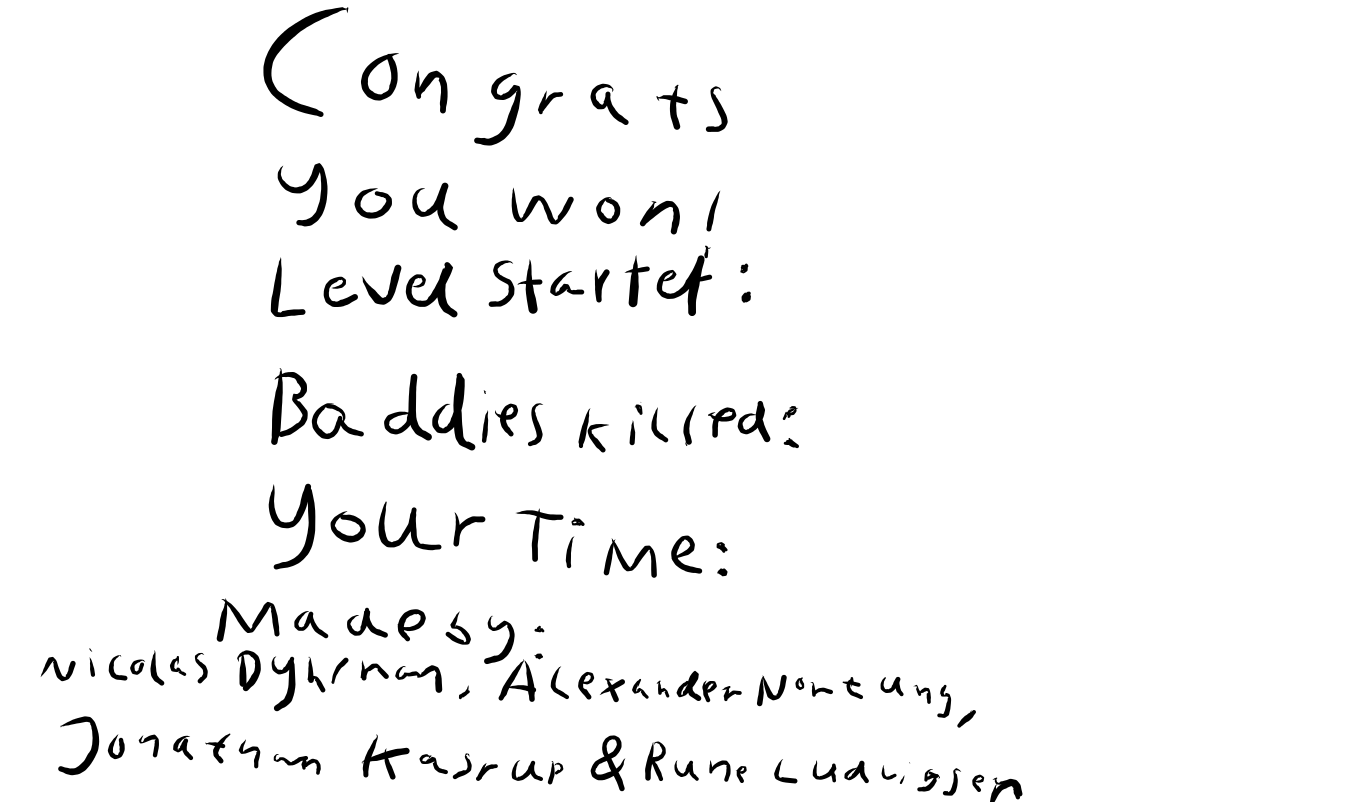 Congrats
You won!
Level Startet:
Baddies killed:
Your Time:
Made by:
Nicolas Dyhrman, Alexander Nortung,
Jonathan Kasrup & Rune Ludvigsen